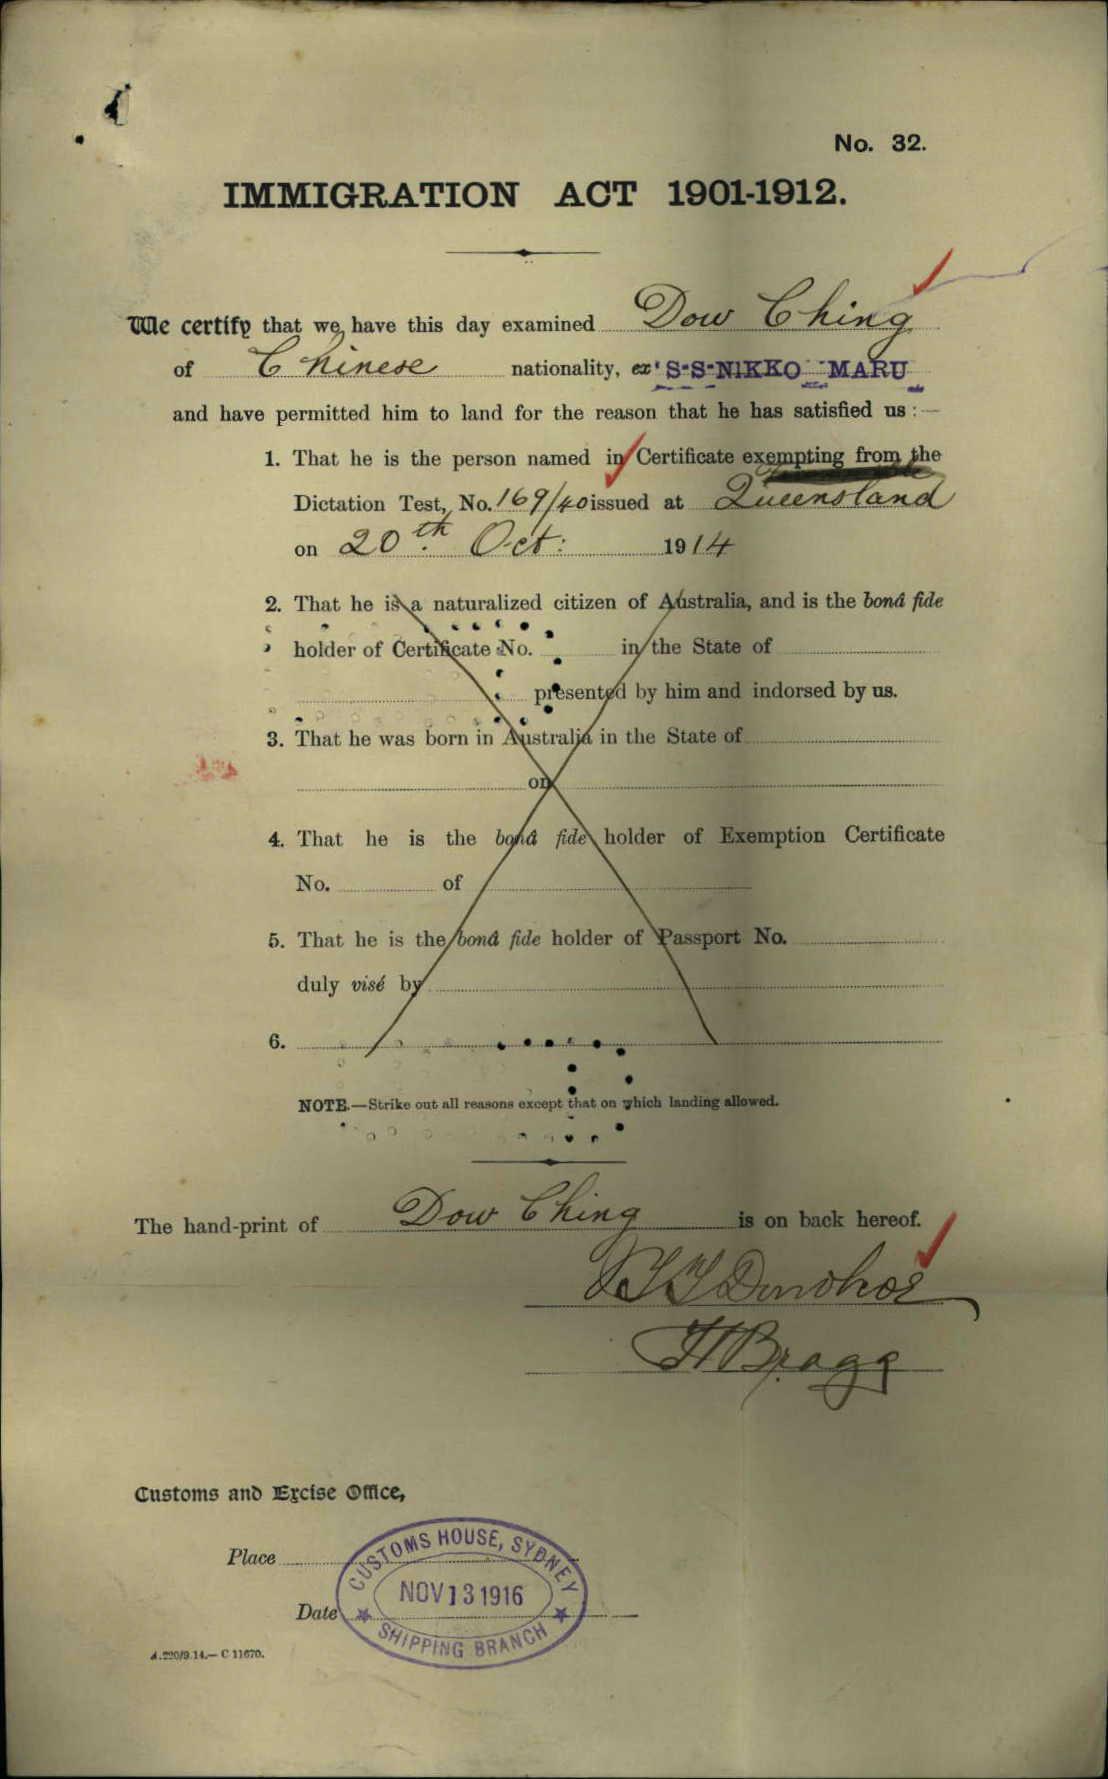 No. 32.
IMMIGRATION ACT 1901-1912.
We certify that we have this day examined Dow Ching
of Chinese nationality, ex S-S-NIKKO MARU
and have permitted him to land for the reason that he has satisfied us :—
1. That he is the person named in Certificate exempting from the
Dictation Test, No. 169/40 issued at Queensland
on 20th Oct: 1914
2. That he is a naturalized citizen of Australia, and is the bonâ fide
holder of Certificate No. in the State of
presented by him and indorsed by us.
3. That he was born in Australia in the State of
on
4. That he is the bonâ fide holder of Exemption Certificate
No. of
5. That he is the bonâ fide holder of Passport No.
duly visé by
6.
NOTE.—Strike out all reasons except that on which landing allowed.
The hand-print of Dow Ching is on back hereof.
Donohoe
Bragg
Customs and Excise Office,
Place
CUSTOMS HOUSE, SYDNEY
NOV 13 1916
Date
SHIPPING BRANCH
A.220/9.14.— C 11670.